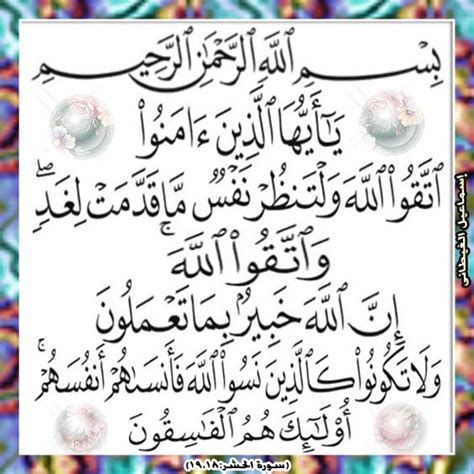 بِسْمِ ٱللَّهِ ٱلرَّحْمَٰنِ ٱلرَّحِيمِ
يَٰٓأَيُّهَا ٱلَّذِينَ ءَامَنُوا۟
ٱتَّقُوا۟ ٱللَّهَ وَلْتَنظُرْ نَفْسٌ مَّا قَدَّمَتْ لِغَدٍۢ ۖ
وَٱتَّقُوا۟ ٱللَّهَ ۚ
إِنَّ ٱللَّهَ خَبِيرٌۢ بِمَا تَعْمَلُونَ
وَلَا تَكُونُوا۟ كَٱلَّذِينَ نَسُوا۟ ٱللَّهَ فَأَنسَىٰهُمْ أَنفُسَهُمْ ۚ
أُو۟لَٰٓئِكَ هُمُ ٱلْفَٰسِقُونَ
(سورة الحشر:١٩،١٨)
إسماعيل الغيطانى